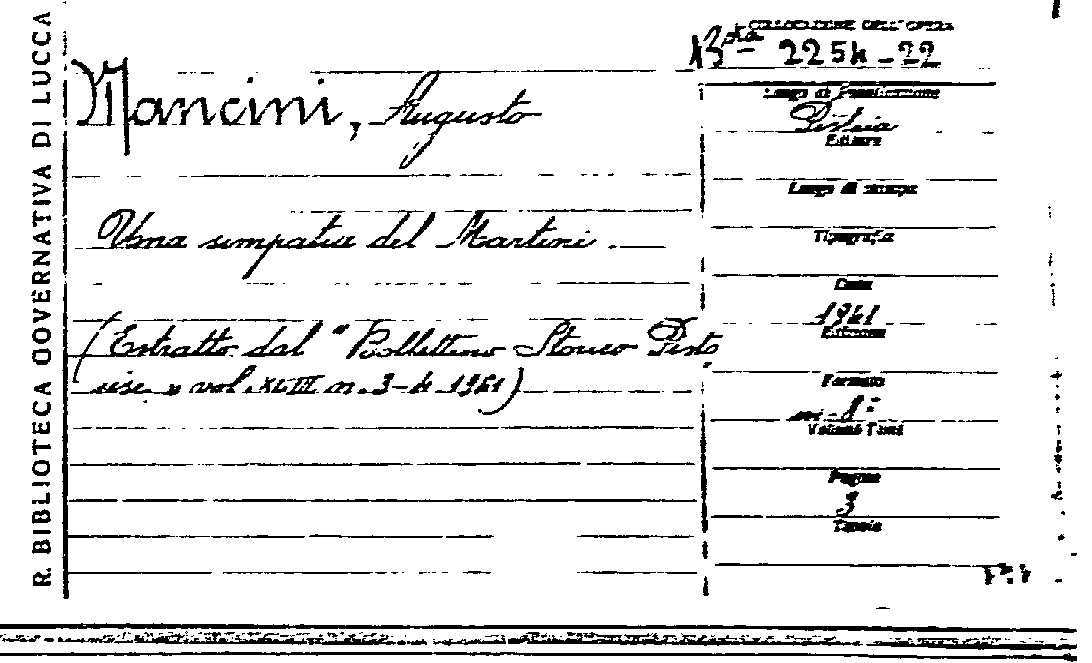 R. BIBLIOTECA GOVERNATIVA DI LUCCA
COLLOCAZIONE DELL'OPERA
Bsta 2254-22
Mancini, Augusto
Una simpatia del Martini.
(Estratto dal "Bollettino Storico Pisto
iese » vol. XLIII n. 3-4 1941)
Luogo di Pubblicazione
Pistoia
Editore
Luogo di stampa
Tipografia
Data
1941
Edizione
Formato
in-8°
Volumi Tomi
Pagine
3
Tavole